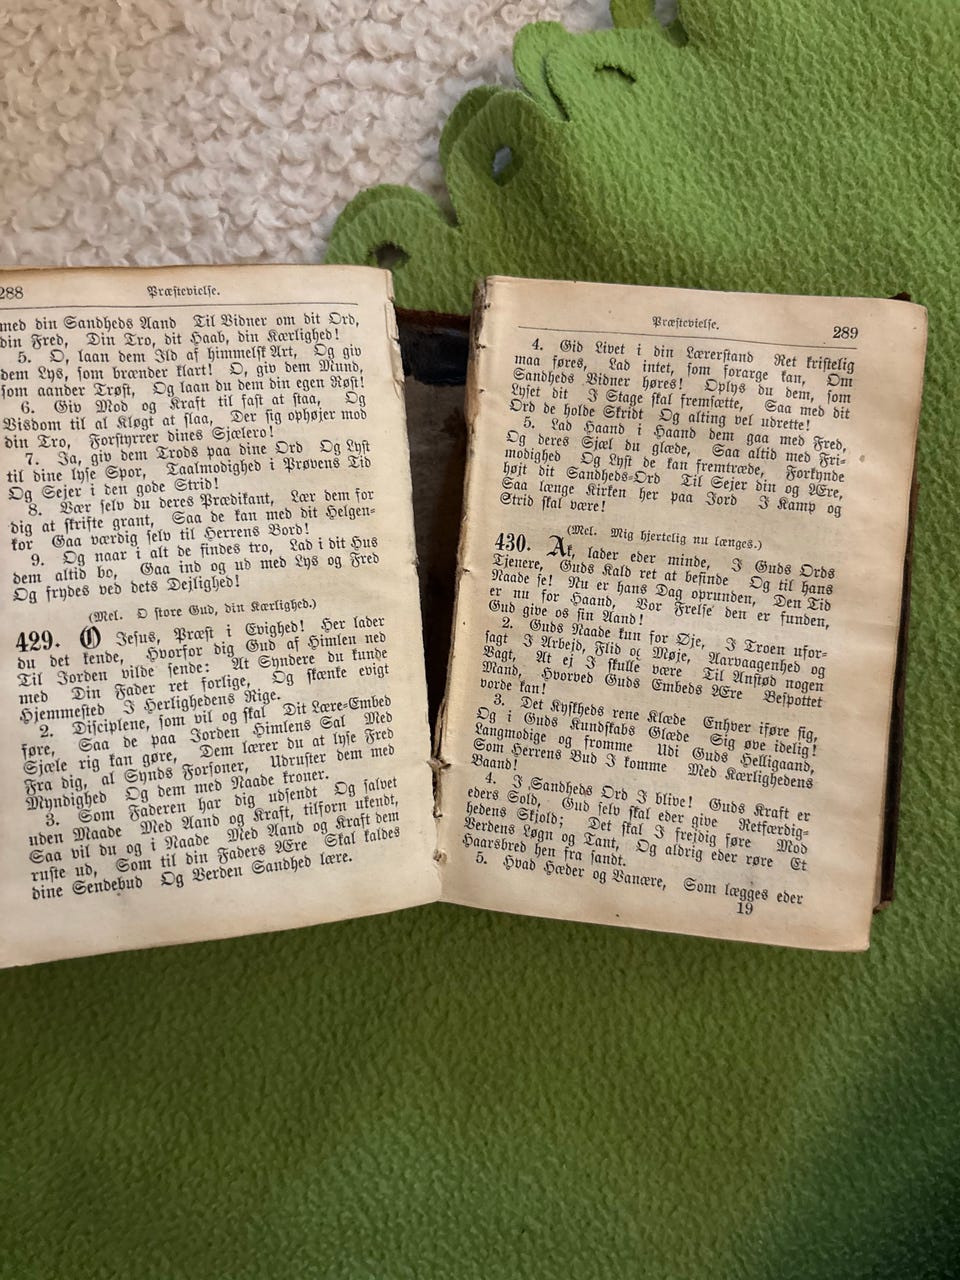 288
Præstevielse.
med din Sandheds Aand Til Vidner om dit Ord,
din Fred, Din Tro, dit Haab, din Kærlighed!
5. O, laan dem Ild af himmelsk Art, Og giv
dem Lys, som brænder klart! O, giv dem Mund,
som aander Trøst, Og laan du dem din egen Røst!
6. Giv Mod og Kraft til fast at staa, Og
Visdom til al Kløgt at slaa, Der sig ophøjer mod
din Tro, Forstyrrer dines Sjælero!
7. Ja, giv dem Trods paa dine Ord Og Lyst
til dine lyse Spor, Taalmodighed i Prøvens Tid
Og Sejer i den gode Strid!
8. Vær selv du deres Prædikant, Lær dem for
dig at skrifte grant, Saa de kan med dit Helgen-
kor Gaa værdig selv til Herrens Bord!
9. Og naar i alt de findes tro, Lad i dit Hus
dem altid bo, Gaa ind og ud med Lys og Fred
Og frydes ved dets Dejlighed!
(Mel. O store Gud, din Kærlighed.)
429. O Jesus, Præst i Evighed! Her lader
du det kende, Hvorfor dig Gud af Himlen ned
Til Jorden vilde sende: At Syndere du kunde
med Din Fader ret forlige, Og skænke evigt
Hjemmested I Herlighedens Rige.
2. Disciplene, som vil og skal Dit Lære-Embed
føre, Saa de paa Jorden Himlens Sal Med
Sjæle rig kan gøre, Dem lærer du at lyse Fred
Fra dig, al Synds Forsoner, Udruster dem med
Myndighed Og dem med Naade kroner.
3. Som Faderen har dig udsendt Og salvet
uden Maade Med Aand og Kraft, tilforn ukendt,
Saa vil du og i Naade Med Aand og Kraft dem
ruste ud, Som til din Faders Ære Skal kaldes
dine Sendebud Og Verden Sandhed lære.
Præstevielse.
289
4. Gid Livet i din Lærerstand Ret kristelig
maa føres, Lad intet, som forarge kan, Om
Sandheds Vidner høres! Oplys du dem, som
Lyset dit I Stage skal fremsætte, Saa med dit
Ord de holde Skridt Og alting vel udrette!
5. Lad Haand i Haand dem gaa med Fred,
Og deres Sjæl du glæde, Saa altid med Fri-
modighed Og Lyst de kan fremtræde, Forkynde
højt dit Sandheds-Ord Til Sejer din og Ære,
Saa længe Kirken her paa Jord I Kamp og
Strid skal være!
(Mel. Mig hjertelig nu længes.)
430. Ak, lader eder minde, I Guds Ords
Tjenere, Guds Kald ret at befinde Og til hans
Naade se! Nu er hans Dag oprunden, Den Tid
er nu for Haand, Vor Frelse den er funden,
Gud give os sin Aand!
2. Guds Naade kun for Øje, I Troen ufor-
sagt I Arbejd, Flid og Møje, Aarvaagenhed og
Vagt, At ej I skulle være Til Anstød nogen
Mand, Hvorved Guds Embeds Ære Bespottet
vorde kan!
3. Det Kyskheds rene Klæde Enhver iføre sig,
Og i Guds Kundskabs Glæde Sig øve idelig!
Langmodige og fromme Udi Guds Helligaand,
Som Herrens Bud I komme Med Kærlighedens
Baand!
4. I Sandheds Ord I blive! Guds Kraft er
eders Sold, Gud selv skal eder give Retfærdig-
hedens Skjold; Det skal I frejdig føre Mod
Verdens Løgn og Tant, Og aldrig eder røre Et
Haarsbred hen fra sandt.
5. Hvad Hæder og Vanære, Som lægges eder
19